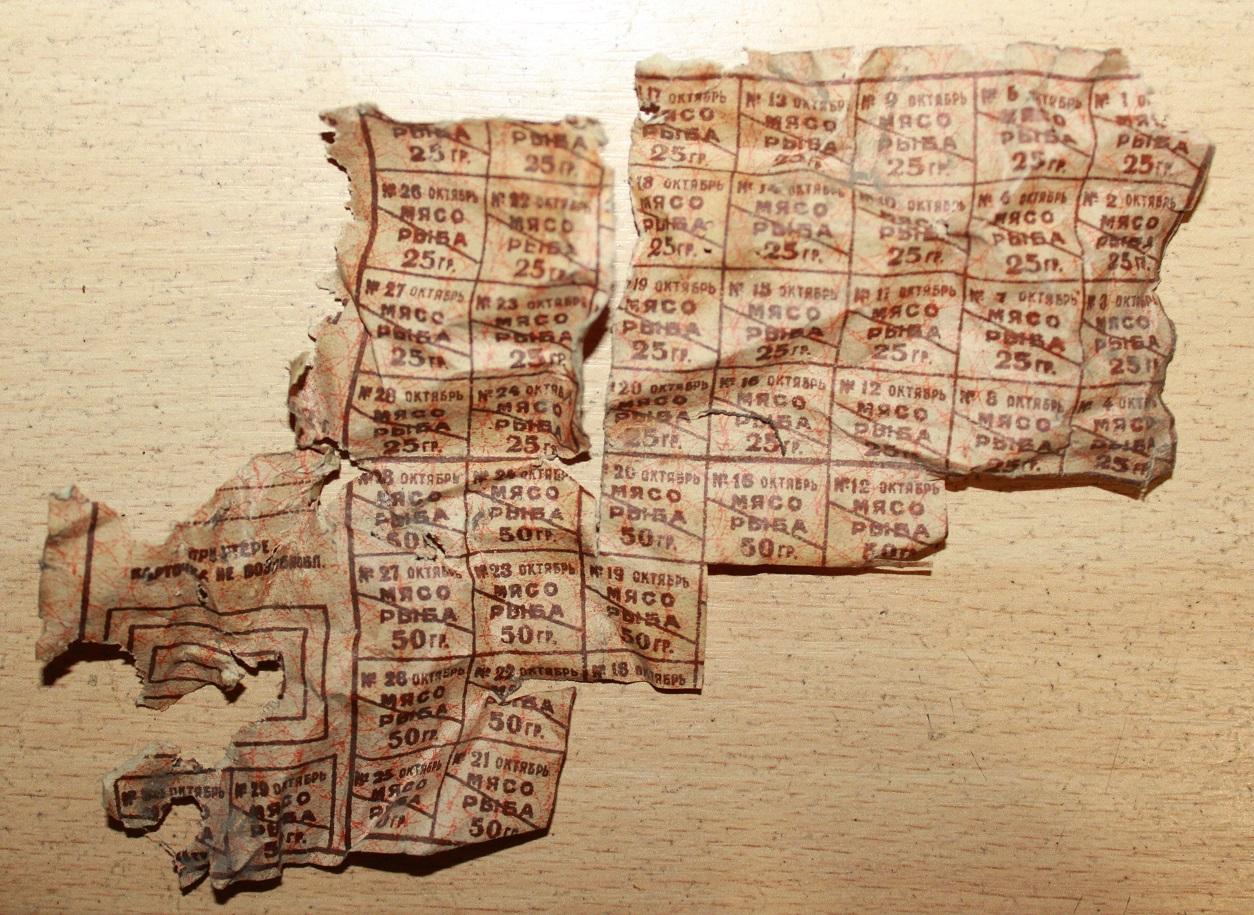 РЫБА
25 ГР.
РЫБА
25 ГР.
17 ОКТЯБРЬ
МЯСО
РЫБА
25 ГР.
№ 13 ОКТЯБРЬ
МЯСО
РЫБА
25 ГР.
№ 9 ОКТЯБРЬ
МЯСО
РЫБА
25 ГР.
ОКТЯБРЬ
МЯСО
РЫБА
25 ГР.
№ 1
РЫБА
25 ГР.
№ 26 ОКТЯБРЬ
МЯСО
РЫБА
25 ГР.
№ 22 ОКТЯБРЬ
МЯСО
РЫБА
25 ГР.
18 ОКТЯБРЬ
МЯСО
РЫБА
25 ГР.
№ 14 ОКТЯБРЬ
МЯСО
РЫБА
25 ГР.
№ 10 ОКТЯБРЬ
МЯСО
РЫБА
25 ГР.
№ 6 ОКТЯБРЬ
МЯСО
РЫБА
25 ГР.
№ 2 ОКТЯБРЬ
МЯСО
РЫБА
25 ГР.
№ 27 ОКТЯБРЬ
МЯСО
РЫБА
25 ГР.
№ 23 ОКТЯБРЬ
МЯСО
РЫБА
25 ГР.
19 ОКТЯБРЬ
МЯСО
РЫБА
25 ГР.
№ 15 ОКТЯБРЬ
МЯСО
РЫБА
25 ГР.
№ 11 ОКТЯБРЬ
МЯСО
РЫБА
25 ГР.
№ 7 ОКТЯБРЬ
МЯСО
РЫБА
25 ГР.
№ 3 ОКТЯБРЬ
МЯСО
РЫБА
25
№ 28 ОКТЯБРЬ
МЯСО
РЫБА
25 ГР.
№ 24 ОКТЯБРЬ
МЯСО
РЫБА
25 Г
20 ОКТЯБРЬ
МЯСО
РЫБА
25 ГР.
№ 16 ОКТЯБРЬ
МЯСО
РЫБА
25 ГР.
№ 12 ОКТЯБРЬ
МЯСО
РЫБА
25 ГР.
№ 8 ОКТЯБРЬ
МЯСО
РЫБА
25 ГР.
№ 4 ОКТЯ
МЯСО
РЫБА
25 Г
№ 28 ОКТЯБРЬ
МЯСО
РЫБА
50
№ 24 ОКТЯБРЬ
МЯСО
РЫБА
50 ГР.
20 ОКТЯБРЬ
МЯСО
РЫБА
50 ГР.
№ 16 ОКТЯБРЬ
МЯСО
РЫБА
50 ГР.
№ 12 ОКТЯБРЬ
МЯСО
РЫБА
50 ГР.
ПРИ УТЕРЕ
КАРТОЧКА НЕ ВОЗОБНОВЛ.
№ 27 ОКТЯБРЬ
МЯСО
РЫБА
50 ГР.
№ 23 ОКТЯБРЬ
МЯСО
РЫБА
50 ГР.
№ 19 ОКТЯБРЬ
МЯСО
РЫБА
50 ГР.
№ 26 ОКТЯБРЬ
МЯСО
РЫБА
50 ГР.
№ 22 ОКТЯБРЬ
РЫБА
50 ГР.
№ 18 ОКТЯБРЬ
ОКТЯБРЬ
№ 29 ОКТЯБРЬ
МЯСО
РЫБА
ГР.
№ 25 ОКТЯБРЬ
МЯСО
РЫБА
ГР.
№ 21 ОКТЯБРЬ
МЯСО
РЫБА
50 ГР.